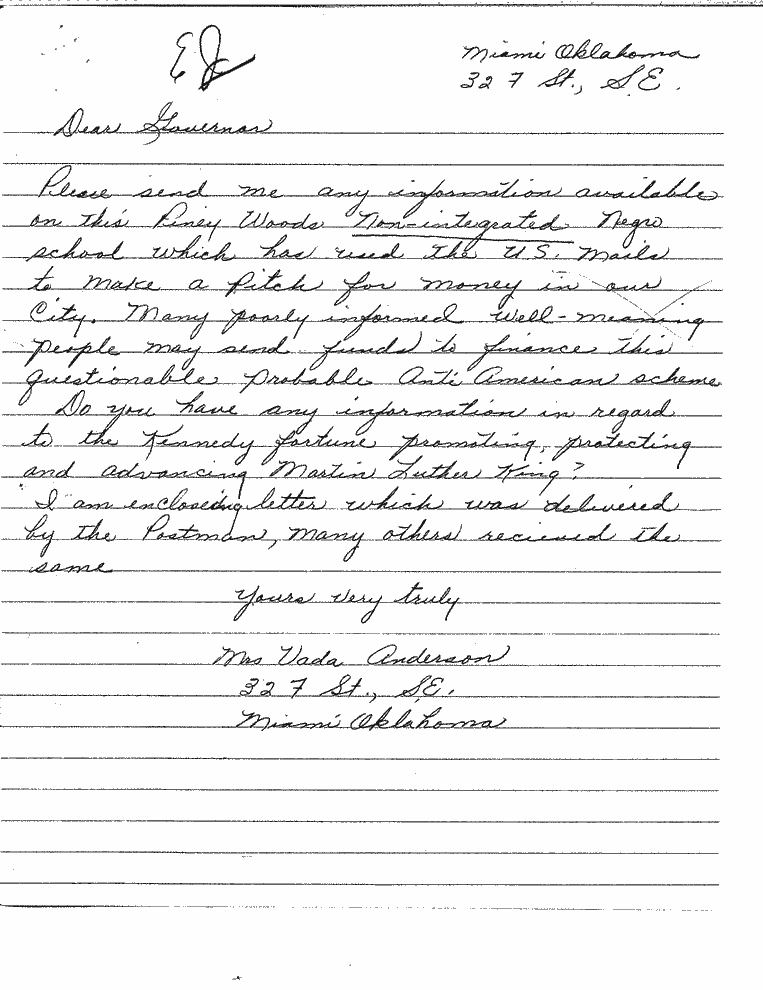 EJ
Miami Oklahoma
32 7 St., S.E.
Dear Governor
Please send me any information available
on this Piney Woods Non-integrated Negro
school which has used the U.S. Mails
to make a pitch for money in our
City. Many poorly informed well-meaning
people may send funds to finance this
questionable probable Anti American scheme
Do you have any information in regard
to the Kennedy fortune promoting, protecting
and advancing Martin Luther King?
I am enclosing letter which was delivered
by the Postman, many others recieved the
same
Yours very truly
Mrs Vada Anderson
32 7 St., S.E.
Miami Oklahoma